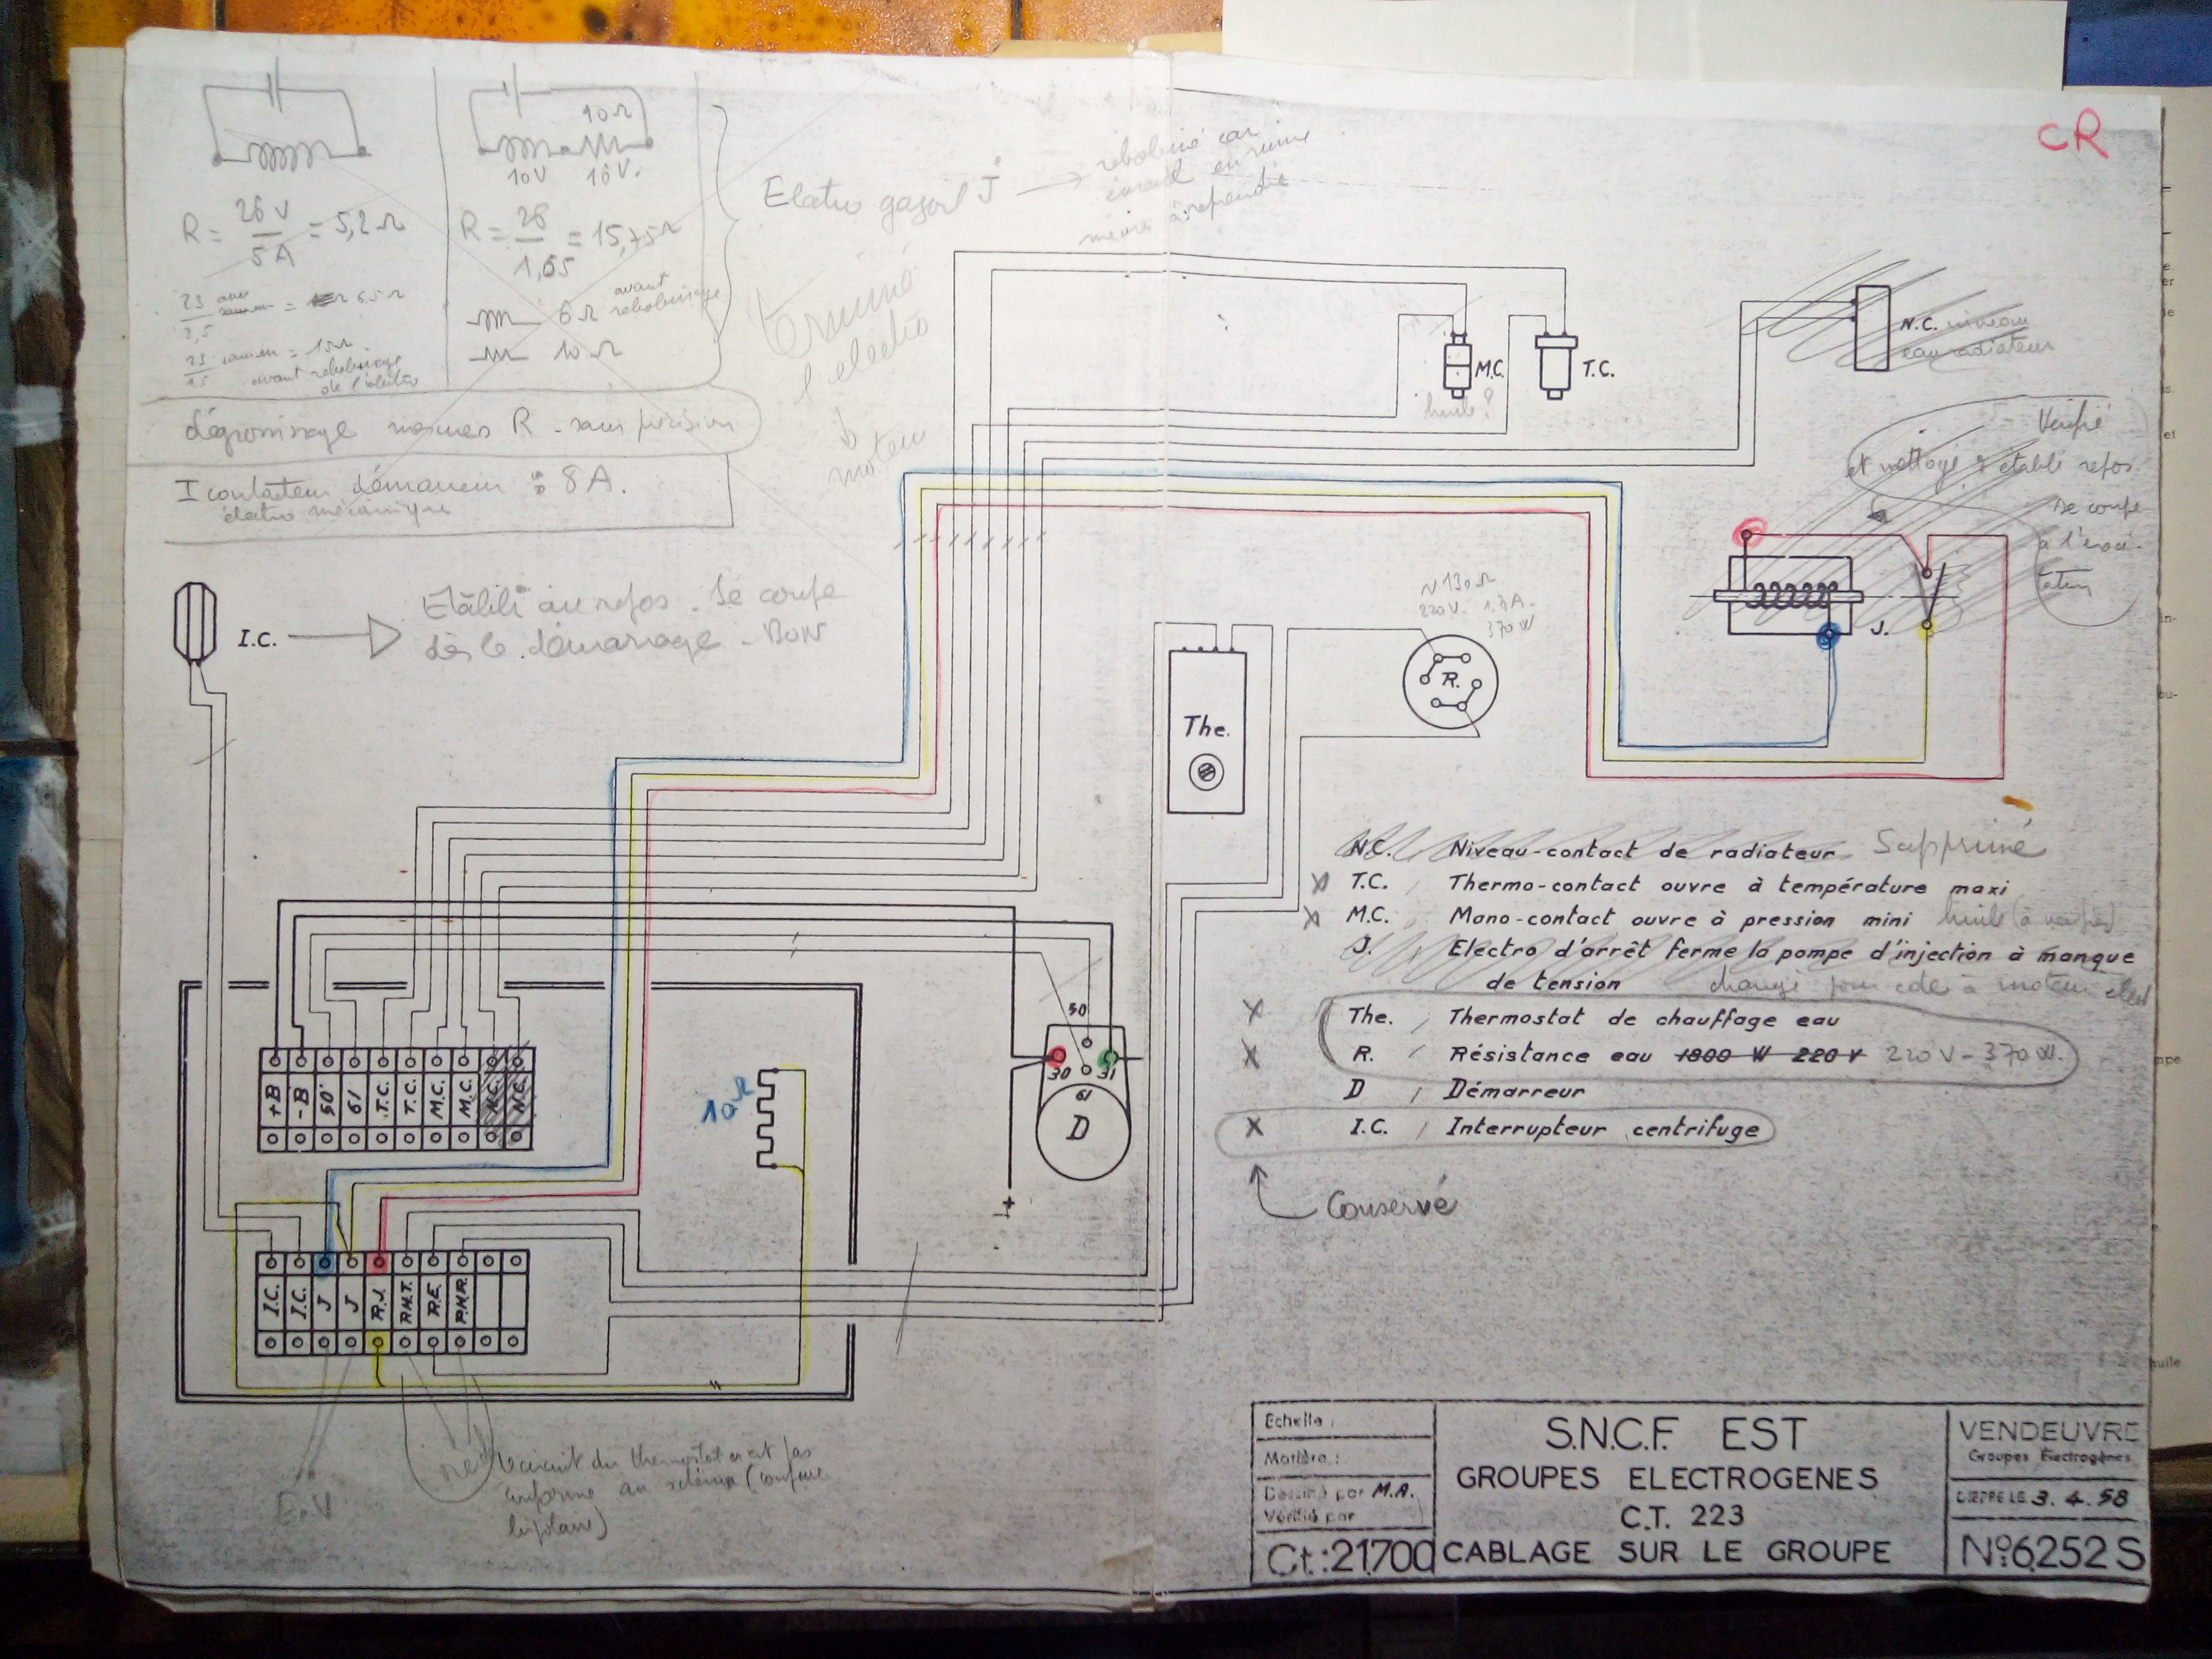 CR
10Ω
10V 16V.
R = 26V / 5A = 5,2Ω
R = 26 / 1,65 = 15,75Ω
23 / 3,5 = 6.5Ω
23 / 1.5 = 15Ω
avant rebobinage
de l'électro
6Ω avant rebobinage
10Ω
Electro gasoil J → rebobiné car
Terminé
l'electro
moteur
dégrossissage mesures R - sans précision
I contacteur démarreur : 8A.
électro mécanique
I.C. → Etabli au repos. Se coupe
dès le démarrage - BON
M.C.
huile ?
T.C.
N.C. niveau
eau radiateur
Vérifié
et nettoyé & établi repos
se coupe
à l'exci-
tation
J.
130Ω
220V. 1.7A.
370W
R.
The.
N.C. Niveau-contact de radiateur Supprimé
x T.C. Thermo-contact ouvre à température maxi
x M.C. Mano-contact ouvre à pression mini huile (à vérifier)
J. Electro d'arrêt ferme la pompe d'injection à manque
de tension changé pour cde à moteur elect
x The. Thermostat de chauffage eau
x R. Résistance eau 1800 W 220 V 220V - 370W.
D Démarreur
x I.C. Interrupteur centrifuge
Conservé
50
30 31
61
D
+
+B -B 50 61 T.C. T.C. M.C. M.C. N.C. N.C.
I.C. I.C. J J R.J. P.H.T. R.E. P.H.R.
E.V
le circuit du thermostat n'est pas
conforme au schéma (coupure
bipolaire)
Echelle :
Matière :
Dessiné par M.A.
Vérifié par
Ct.:21700
S.N.C.F. EST
GROUPES ELECTROGENES
C.T. 223
CABLAGE SUR LE GROUPE
VENDEUVRE
Groupes Électrogènes
DIEPPE LE 3. 4. 58
N°6252S